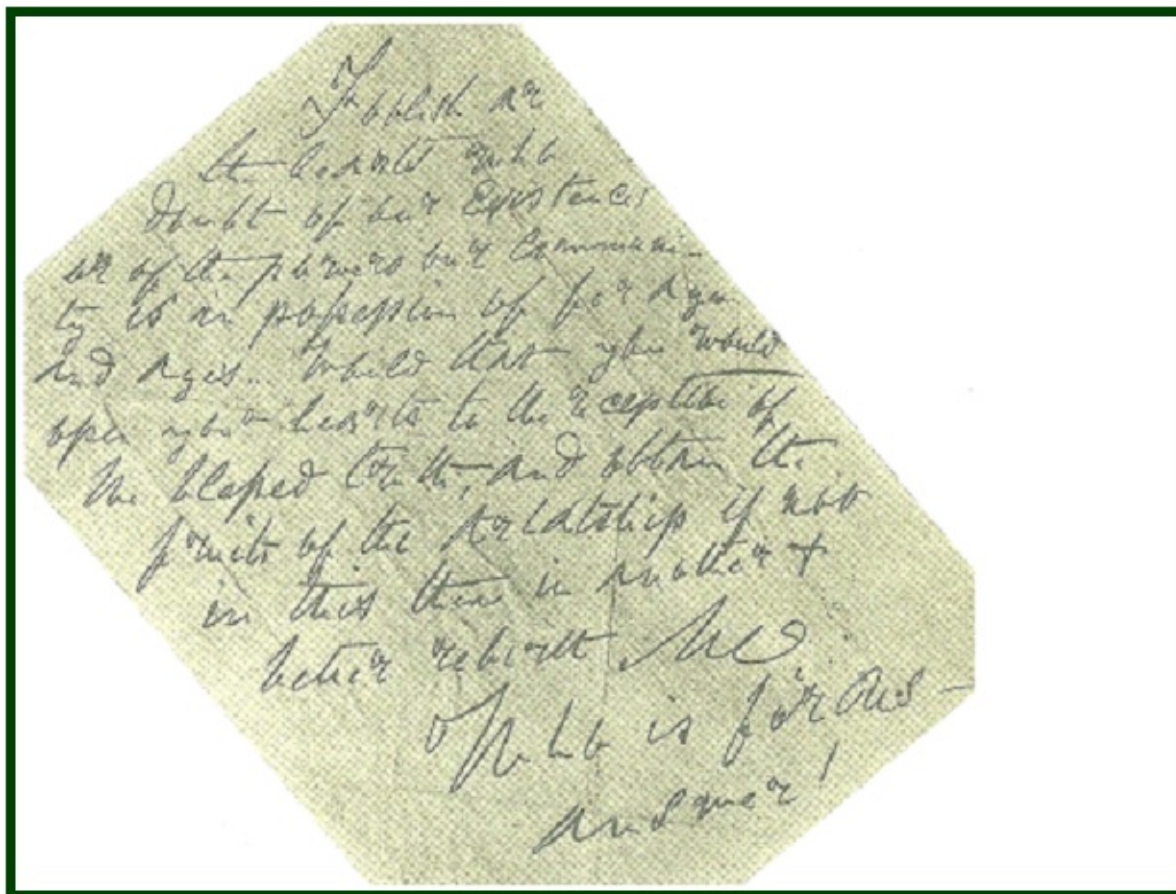 Foolish are
the hearts who
doubt of our Existence
or of the powers our Communi-
ty is in possession of for ages
and ages. Would that you would
open your hearts to the reception of
the blessed truth, and obtain the
fruits of the Arhatship if not
in this then in another &
better rebirth. M∴
Who is for us—
answer!